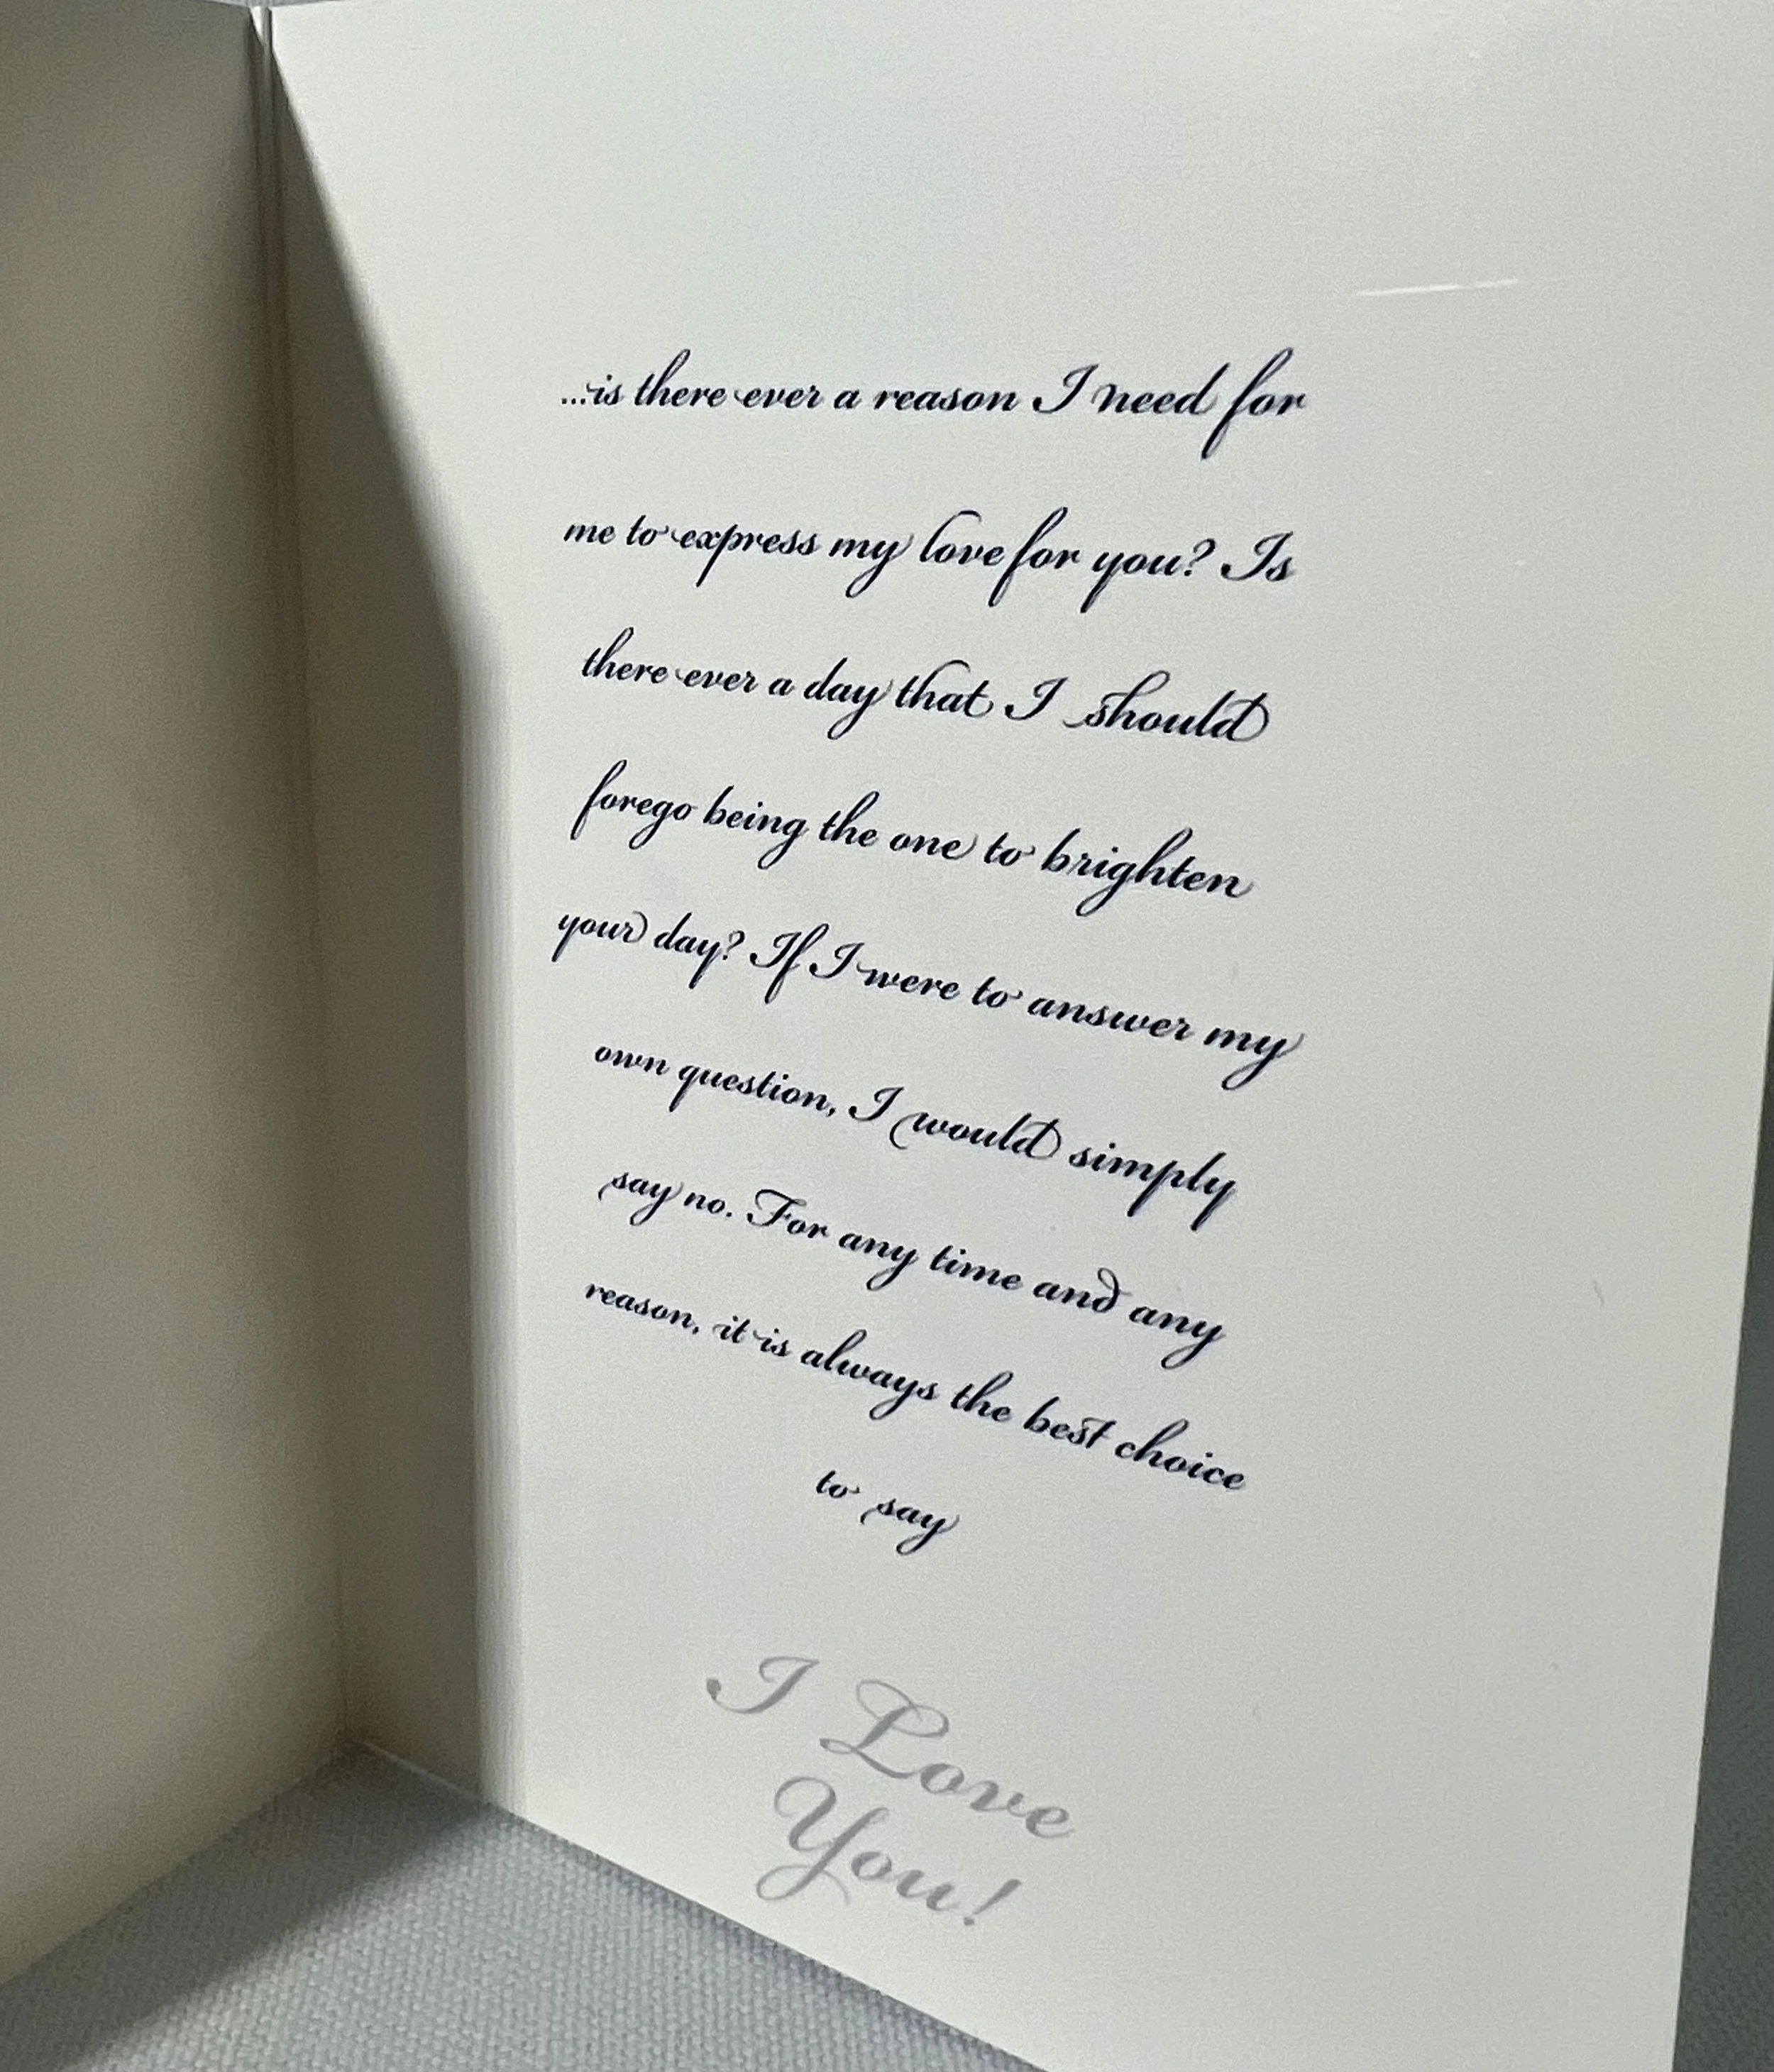 ...is there ever a reason I need for
me to express my love for you? Is
there ever a day that I should
forego being the one to brighten
your day? If I were to answer my
own question, I would simply
say no. For any time and any
reason, it is always the best choice
to say
I Love
You!